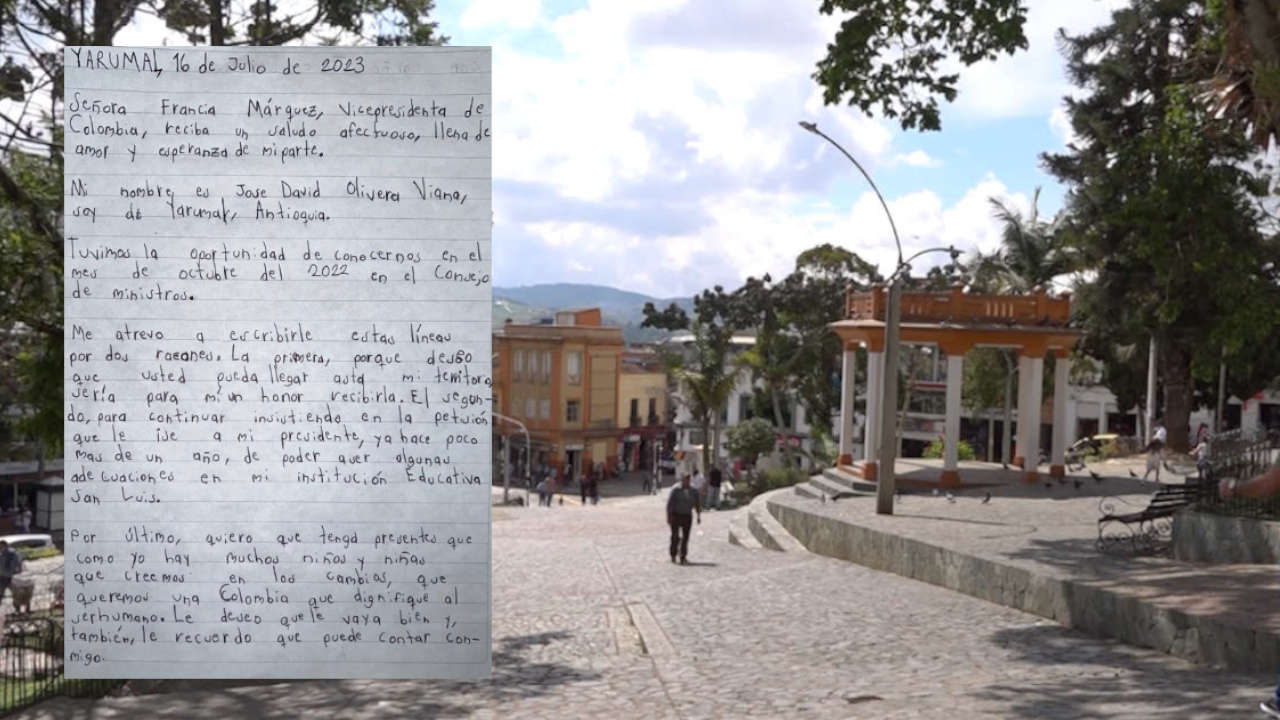 YARUMAL, 16 de Julio de 2023
Señora Francia Márquez, Vicepresidenta de
Colombia, reciba un saludo afectuoso, llena de
amor y esperanza de mi parte.
Mi nombre es Jose David Olivera Viana,
soy de Yarumal, Antioquia.
Tuvimos la oportunidad de conocernos en el
mes de octubre del 2022 en el Consejo
de ministros.
Me atrevo a escribirle estas líneas
por dos razones. La primera, porque deseo
que usted pueda llegar asta mi territorio
sería para mi un honor recibirla. El segun-
do, para continuar insistiendo en la petición
que le ise a mi presidente, ya hace poco
mas de un año, de poder aver algunas
adecuaciones en mi institución Educativa
San Luis.
Por último, quiero que tenga presentes que
como yo hay muchos niños y niñas
que creemos en los cambios, que
queremos una Colombia que dignifique al
serhumano. Le deseo que le vaya bien y,
también, le recuerdo que puede contar con-
migo.